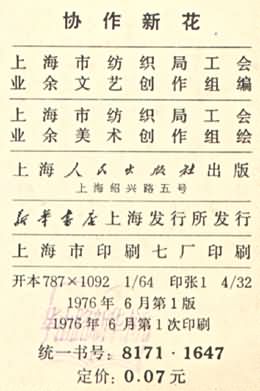 协作新花
上海市纺织局工会
业余文艺创作组编
上海市纺织局工会
业余美术创作组绘
上海人民出版社出版
上海绍兴路五号
新华书店上海发行所发行
上海市印刷七厂印刷
开本787×1092 1/64 印张1 4/32
1976年6月第1版
1976年6月第1次印刷
统一书号：8171·1647
定价：0.07元